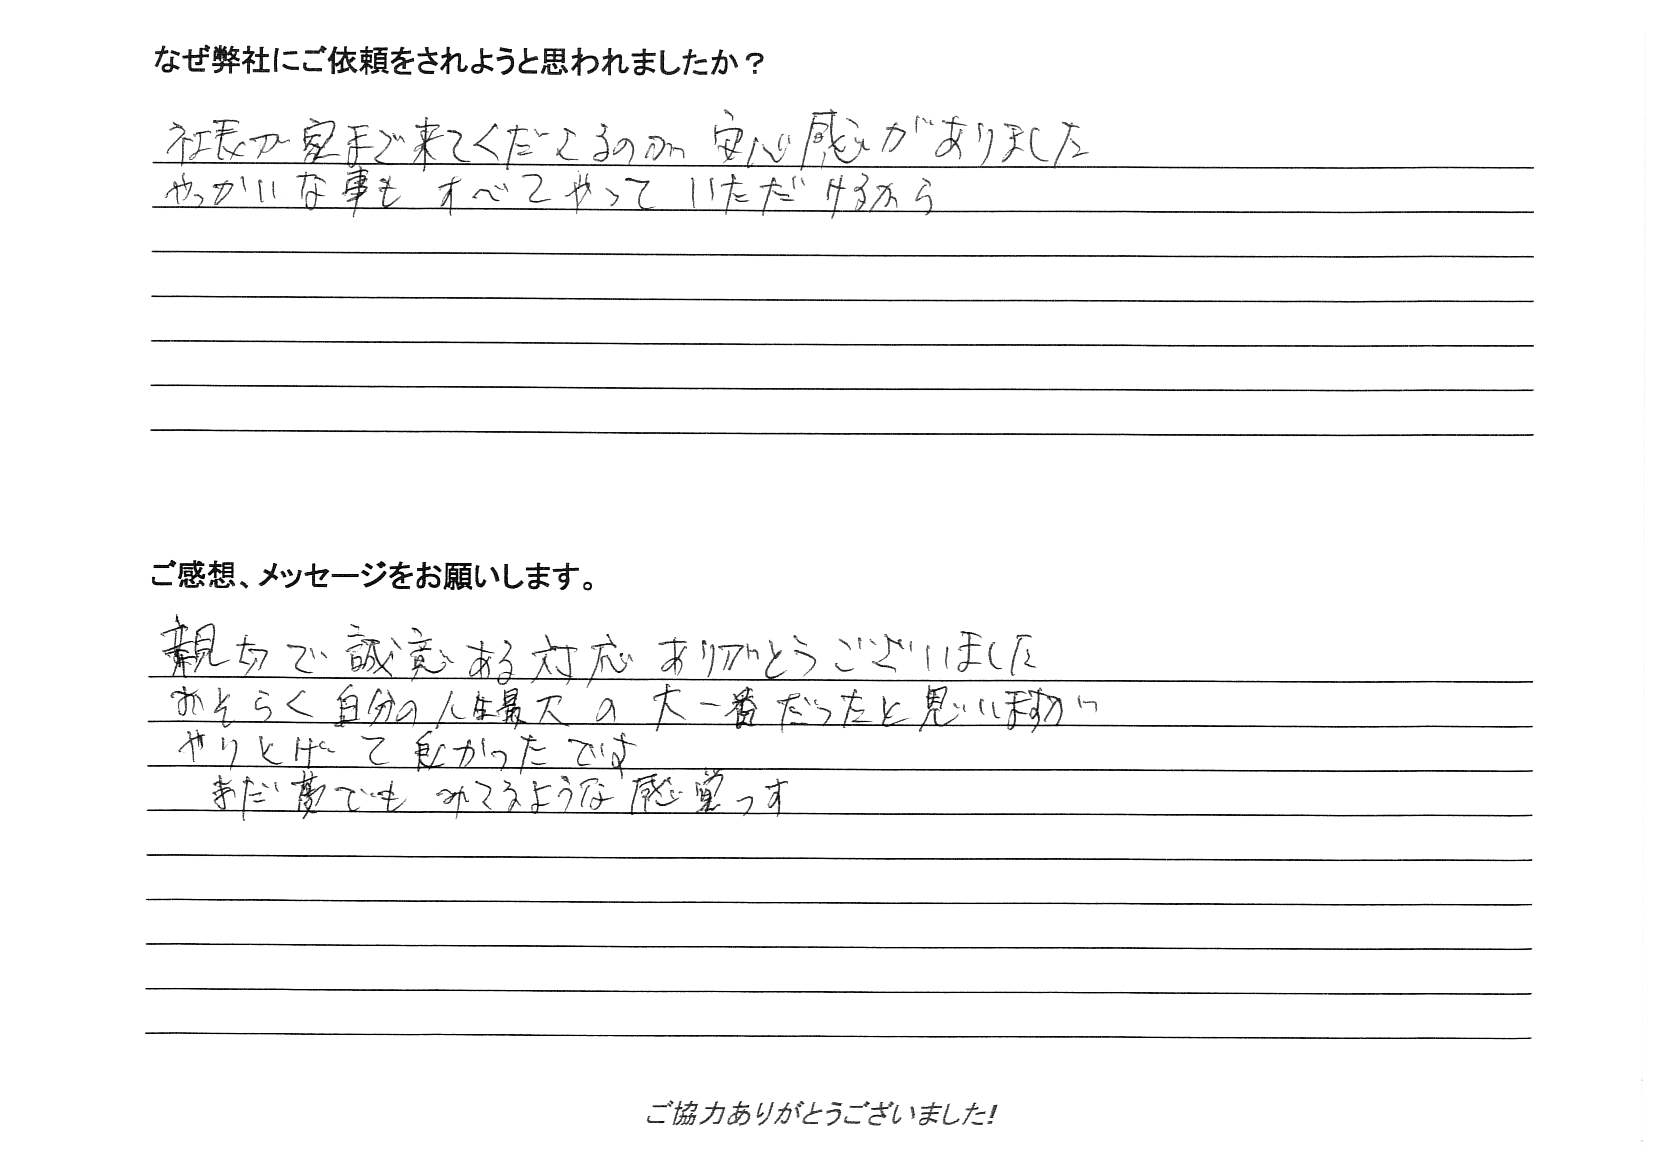 なぜ弊社にご依頼をされようと思われましたか？
社長が家まで来てくださるのが 安心感がありました
やっかいな事も すべてやって いただけるから
ご感想、メッセージをお願いします。
親切で 誠意ある対応 ありがとうございました
おそらく自分の人生最大の 大一番だったと思いますが
やりとげて良かったです
まだ夢でも みてるような感覚っす
ご協力ありがとうございました!